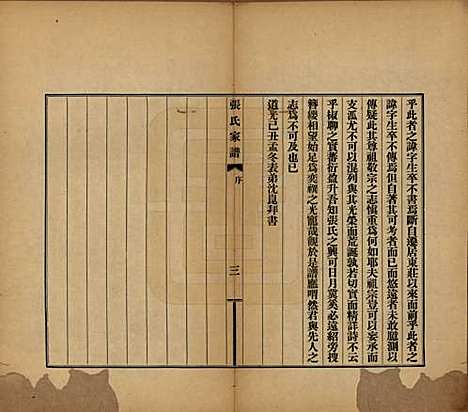 乎此者之諱字生卒不書焉斷自遷居東莊以來而前乎此者之
諱字生卒不傳焉此自其可考者而已而悠遠者未敢臆測以
傳疑此其尊祖敬宗之志慎重為何如耶夫祖宗豈可以妄承而
支派尤不可以混列與其光榮而荒誕孰若切實而精詳詩不云
乎椒聊之實蕃衍盈升吾知張氏之興可日月冀奚必遠紹旁搜
簪纓相望始足為奕禩之光寵哉觀於是譜應喟然君與先人之
志為不可及也已
道光己丑孟冬表弟沈崑拜書
張氏家譜
序
三